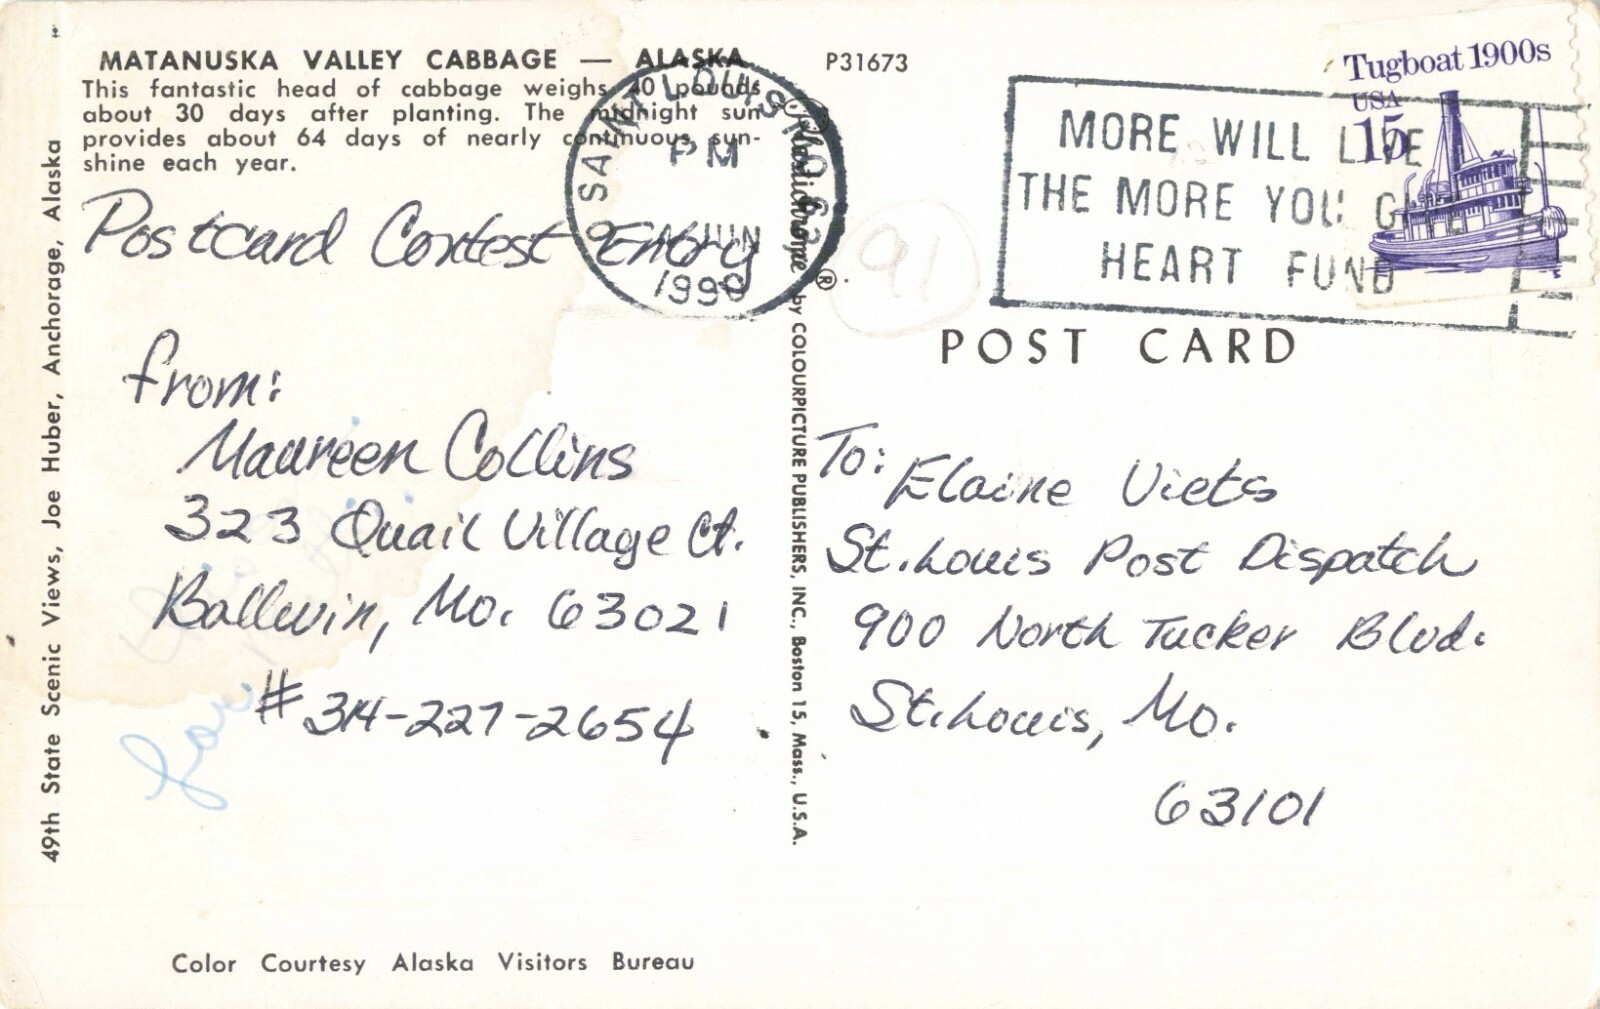 MATANUSKA VALLEY CABBAGE — ALASKA
This fantastic head of cabbage weighs 40 pounds
about 30 days after planting. The midnight sun
provides about 64 days of nearly continuous sun-
shine each year.
Postcard Contest Entry
from:
Maureen Collins
323 Quail Village Ct.
Ballwin, Mo. 63021
# 314-227-2654
Color Courtesy Alaska Visitors Bureau
49th State Scenic Views, Joe Huber, Anchorage, Alaska
Plastichrome ® by COLOURPICTURE PUBLISHERS, INC., Boston 15, Mass., U.S.A.
P31673
SAINT LOUIS MO
PM
JUN
1990
91
MORE WILL LIVE
THE MORE YOU GIVE
HEART FUND
Tugboat 1900s
USA
15
POST CARD
To: Elaine Viets
St. Louis Post Dispatch
900 North Tucker Blvd.
St. Louis, Mo.
63101